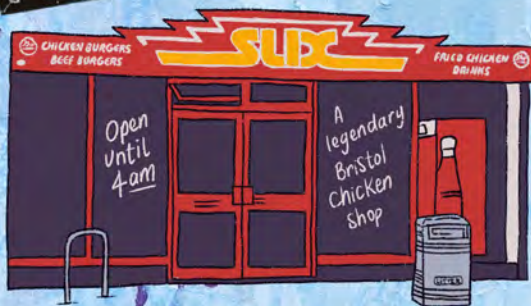 CHICKEN BURGERS
BEEF BURGERS
SLIX
FRIED CHICKEN
DRINKS
Open
until
4am
A
legendary
Bristol
Chicken
Shop
LITTER